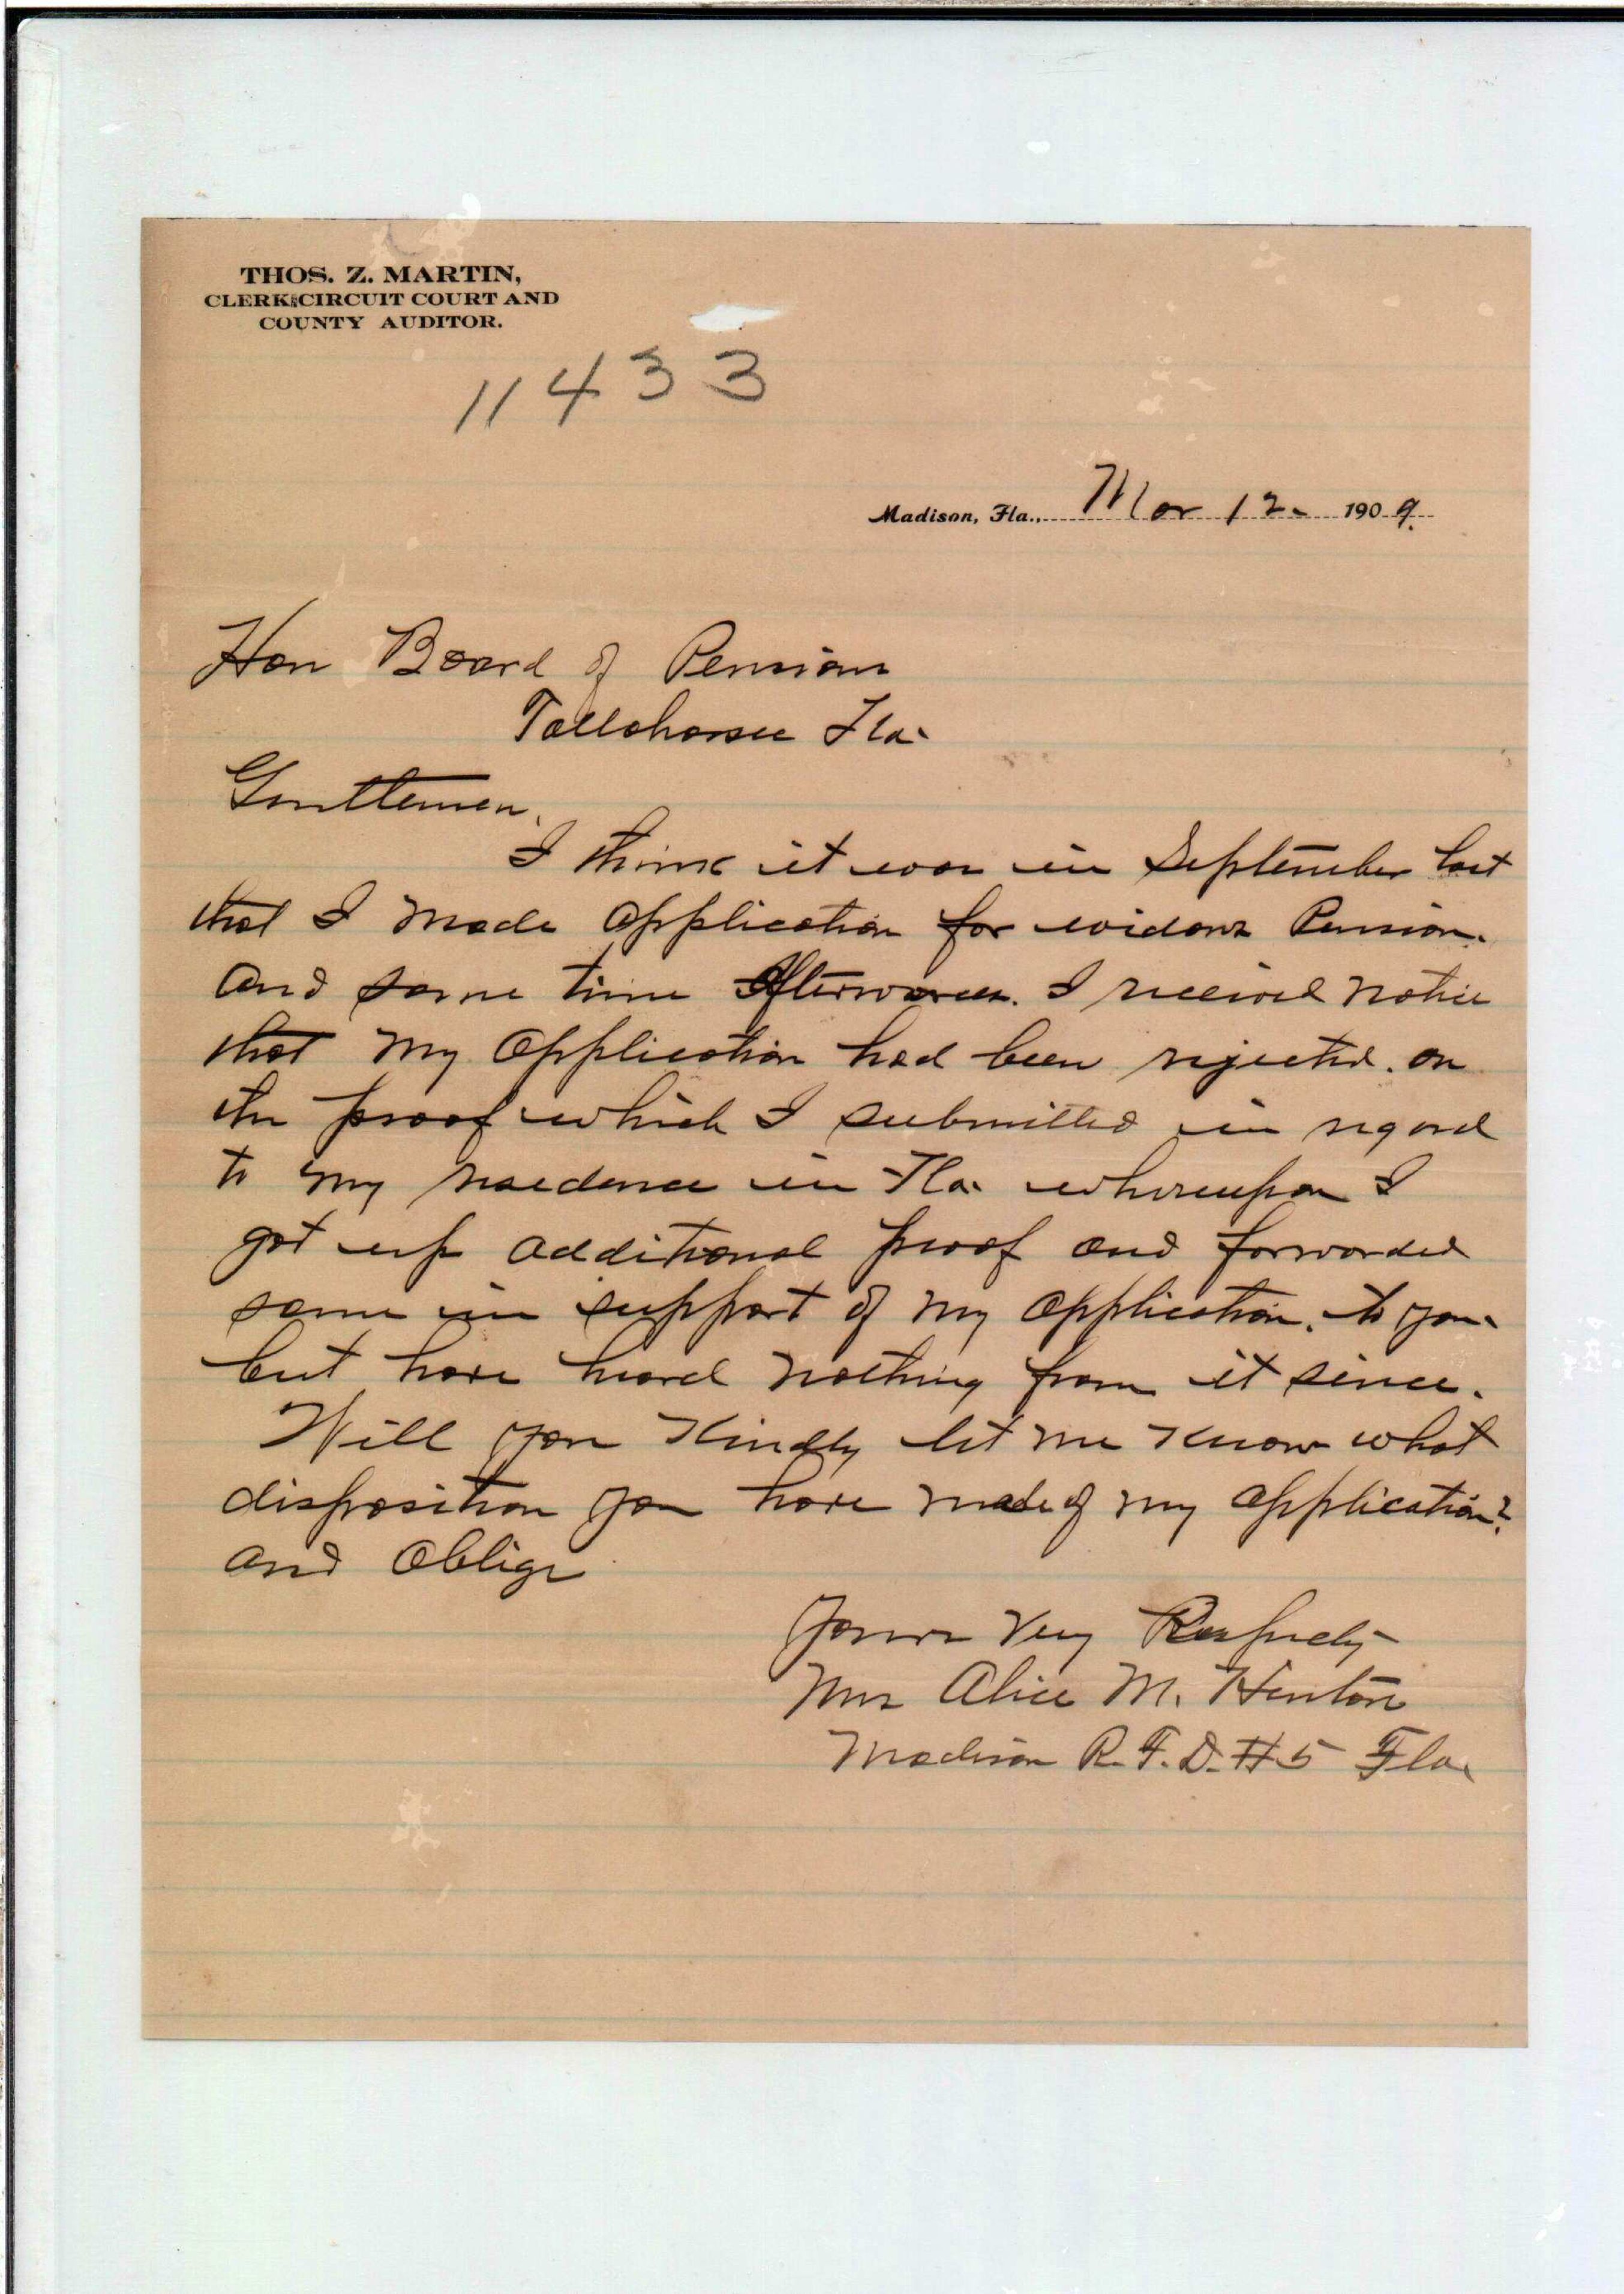 THOS. Z. MARTIN,
CLERK CIRCUIT COURT AND
COUNTY AUDITOR.
11433
Madison, Fla., Mar 12- 1909.
Hon Board of Pensions
Tallahassee Fla.
Gentlemen,
I think it was in September last
that I made application for widows Pension.
and some time Afterwards. I received notice
that my Application had been rejected. on
the proof which I submitted in regard
to my residence in Fla. whereupon I
got up additional proof and forwarded
same in support of my application. to you.
but have heard nothing from it since.
Will you Kindly let me Know what
disposition you have made of my application?
and Oblige
Yours Very Respectly
Mrs Alice M. Hinton
Madison R.F.D. #5 Fla.